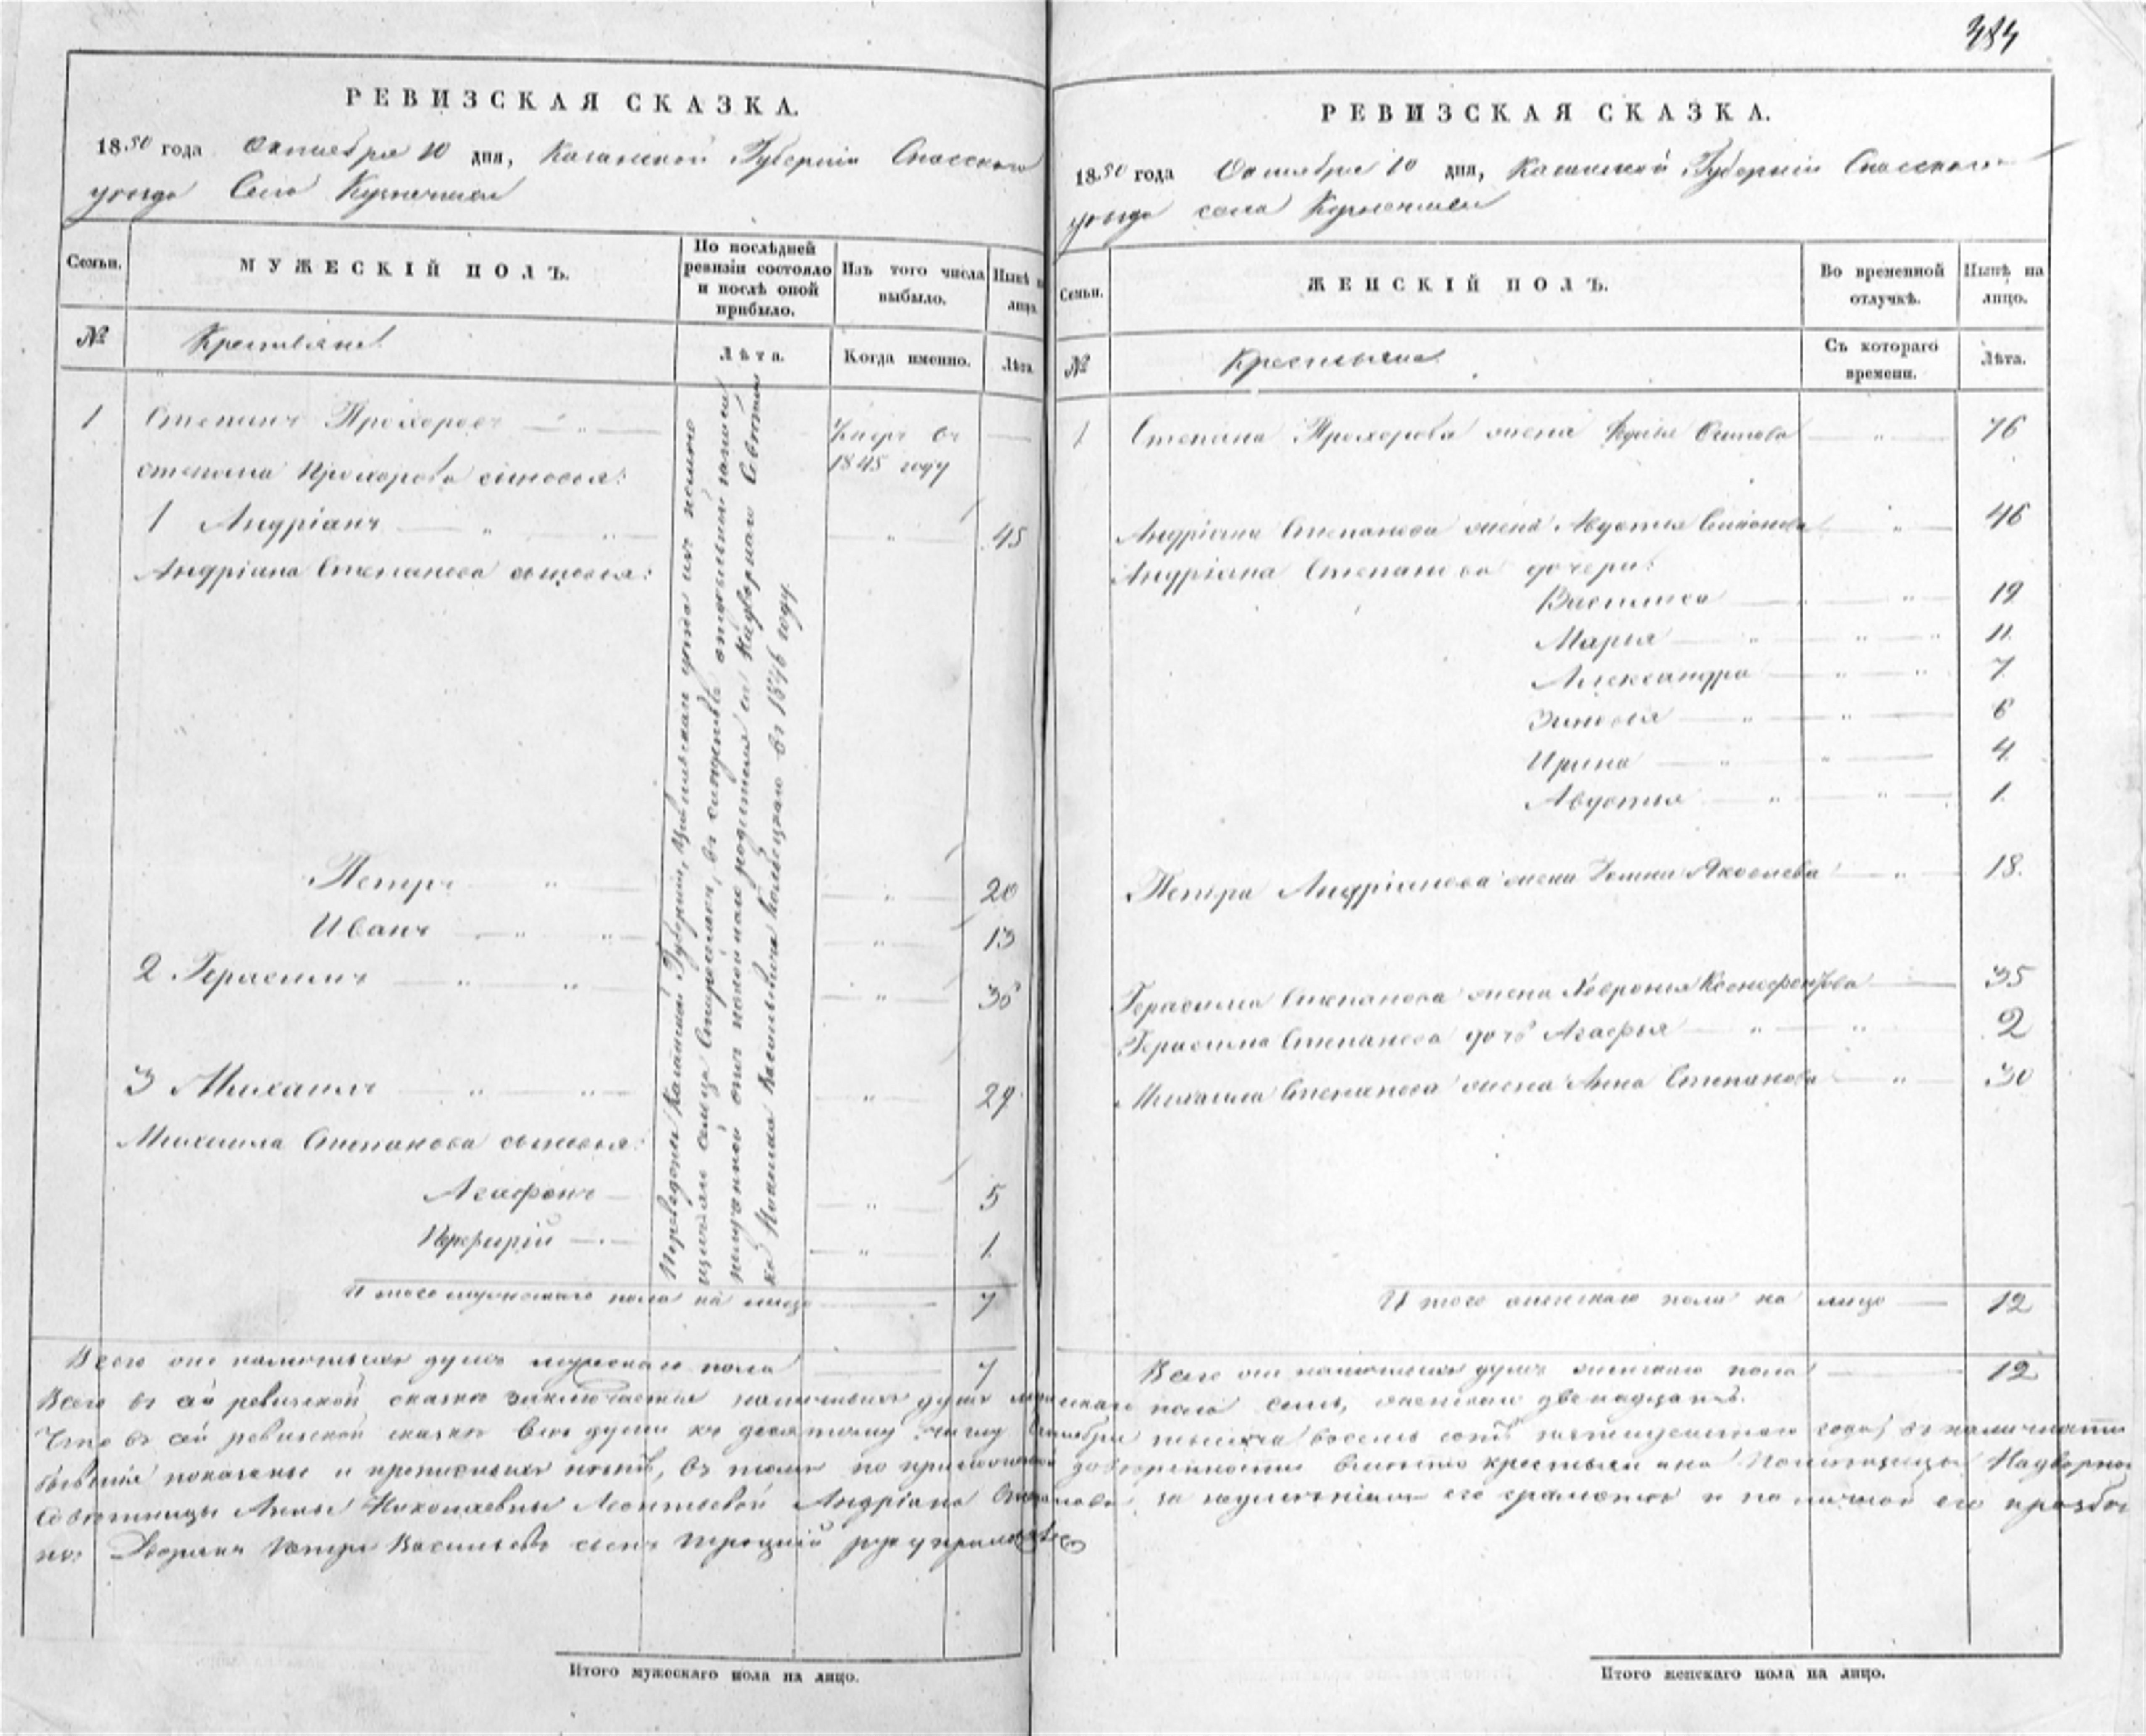 384
РЕВИЗСКАЯ СКАЗКА.
1850 года Октября 10 дня, Казанской Губерніи Спасскаго
уѣзда Село Кузнечиха
Семьи. МУЖЕСКІЙ ПОЛЪ. По послѣдней ревизіи состояло и послѣ оной прибыло. Изъ того числа выбыло. Нынѣ на лицо.
№ Крестьяне Лѣта. Когда именно. Лѣта.
1 Степанъ Прохоровъ Умеръ въ 1845 году
Степана Прохорова сыновья:
1 Андріанъ 45
Андріана Степанова сыновья:
Петръ 20
Иванъ 13
2 Герасимъ 36
3 Михаилъ 29
Михаила Степанова сыновья:
Агафонъ 5
Порфирій 1
Переведены Казанской Губерніи, уѣзда изъ
сельца въ отпускной записи
отъ родителя ея Надворнаго Совѣтни
ка Николая Васильевича въ 1846 году.
Итого мужескаго пола на лицо 7
Всего онъ наличныхъ душъ мужескаго пола 7
РЕВИЗСКАЯ СКАЗКА.
1850 года Октября 10 дня, Казанской Губерніи Спасскаго
уѣзда села Кузнечихи
Семьи. ЖЕНСКІЙ ПОЛЪ. Во временной отлучкѣ. Нынѣ на лицо.
№ Крестьяне Съ котораго времени. Лѣта.
1 Степана Прохорова жена Осипова 76
Андріана Степанова жена Авдотья 46
Андріана Степанова дочери:
Василиса 19
Марья 11
Александра 7
Зиновья 6
Ирина 4
Авдотья 1
Петра Андріанова жена Яковлева 18
Герасима Степанова жена Хавронья Ксенофонтова 35
Герасима Степанова дочь Агафья 2
Михаила Степанова жена Анна Степанова 30
Итого женскаго пола на лицо 12
Всего онъ наличныхъ душъ женскаго пола 12
Всего въ сей ревизской сказкѣ заключается наличныхъ душъ мужескаго пола семь, женскаго двенадцать.
Что въ сей ревизской сказкѣ все души къ десятому числу Октября тысяча восемь сотъ пятидесятаго года, въ наличности
бывшія показаны и прописныхъ нѣтъ, въ томъ по крестьянина Помѣщицы Надворной
Совѣтницы Анны Николаевны Леонтьевой Андріана Степанова за неумѣніемъ его грамотѣ и по личной его прозьбѣ
Дворянъ Петръ Васильевъ сынъ Троицкій руку приложилъ
Итого мужескаго пола на лицо.
Итого женскаго пола на лицо.